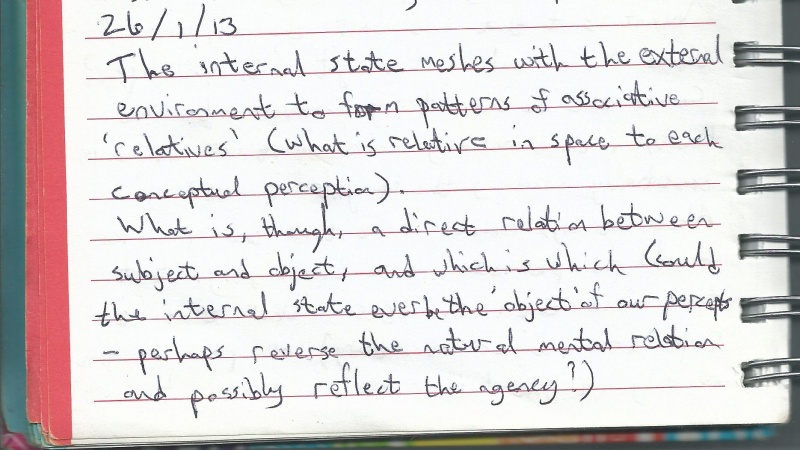 26/1/13
The internal state meshes with the external
environment to form patterns of associative
'relatives' (what is relative in space to each
conceptual perception).
What is, though, a direct relation between
subject and object, and which is which (could
the internal state ever be the 'object' of our percepts
- perhaps reverse the natural mental relation
and possibly reflect the agency?)